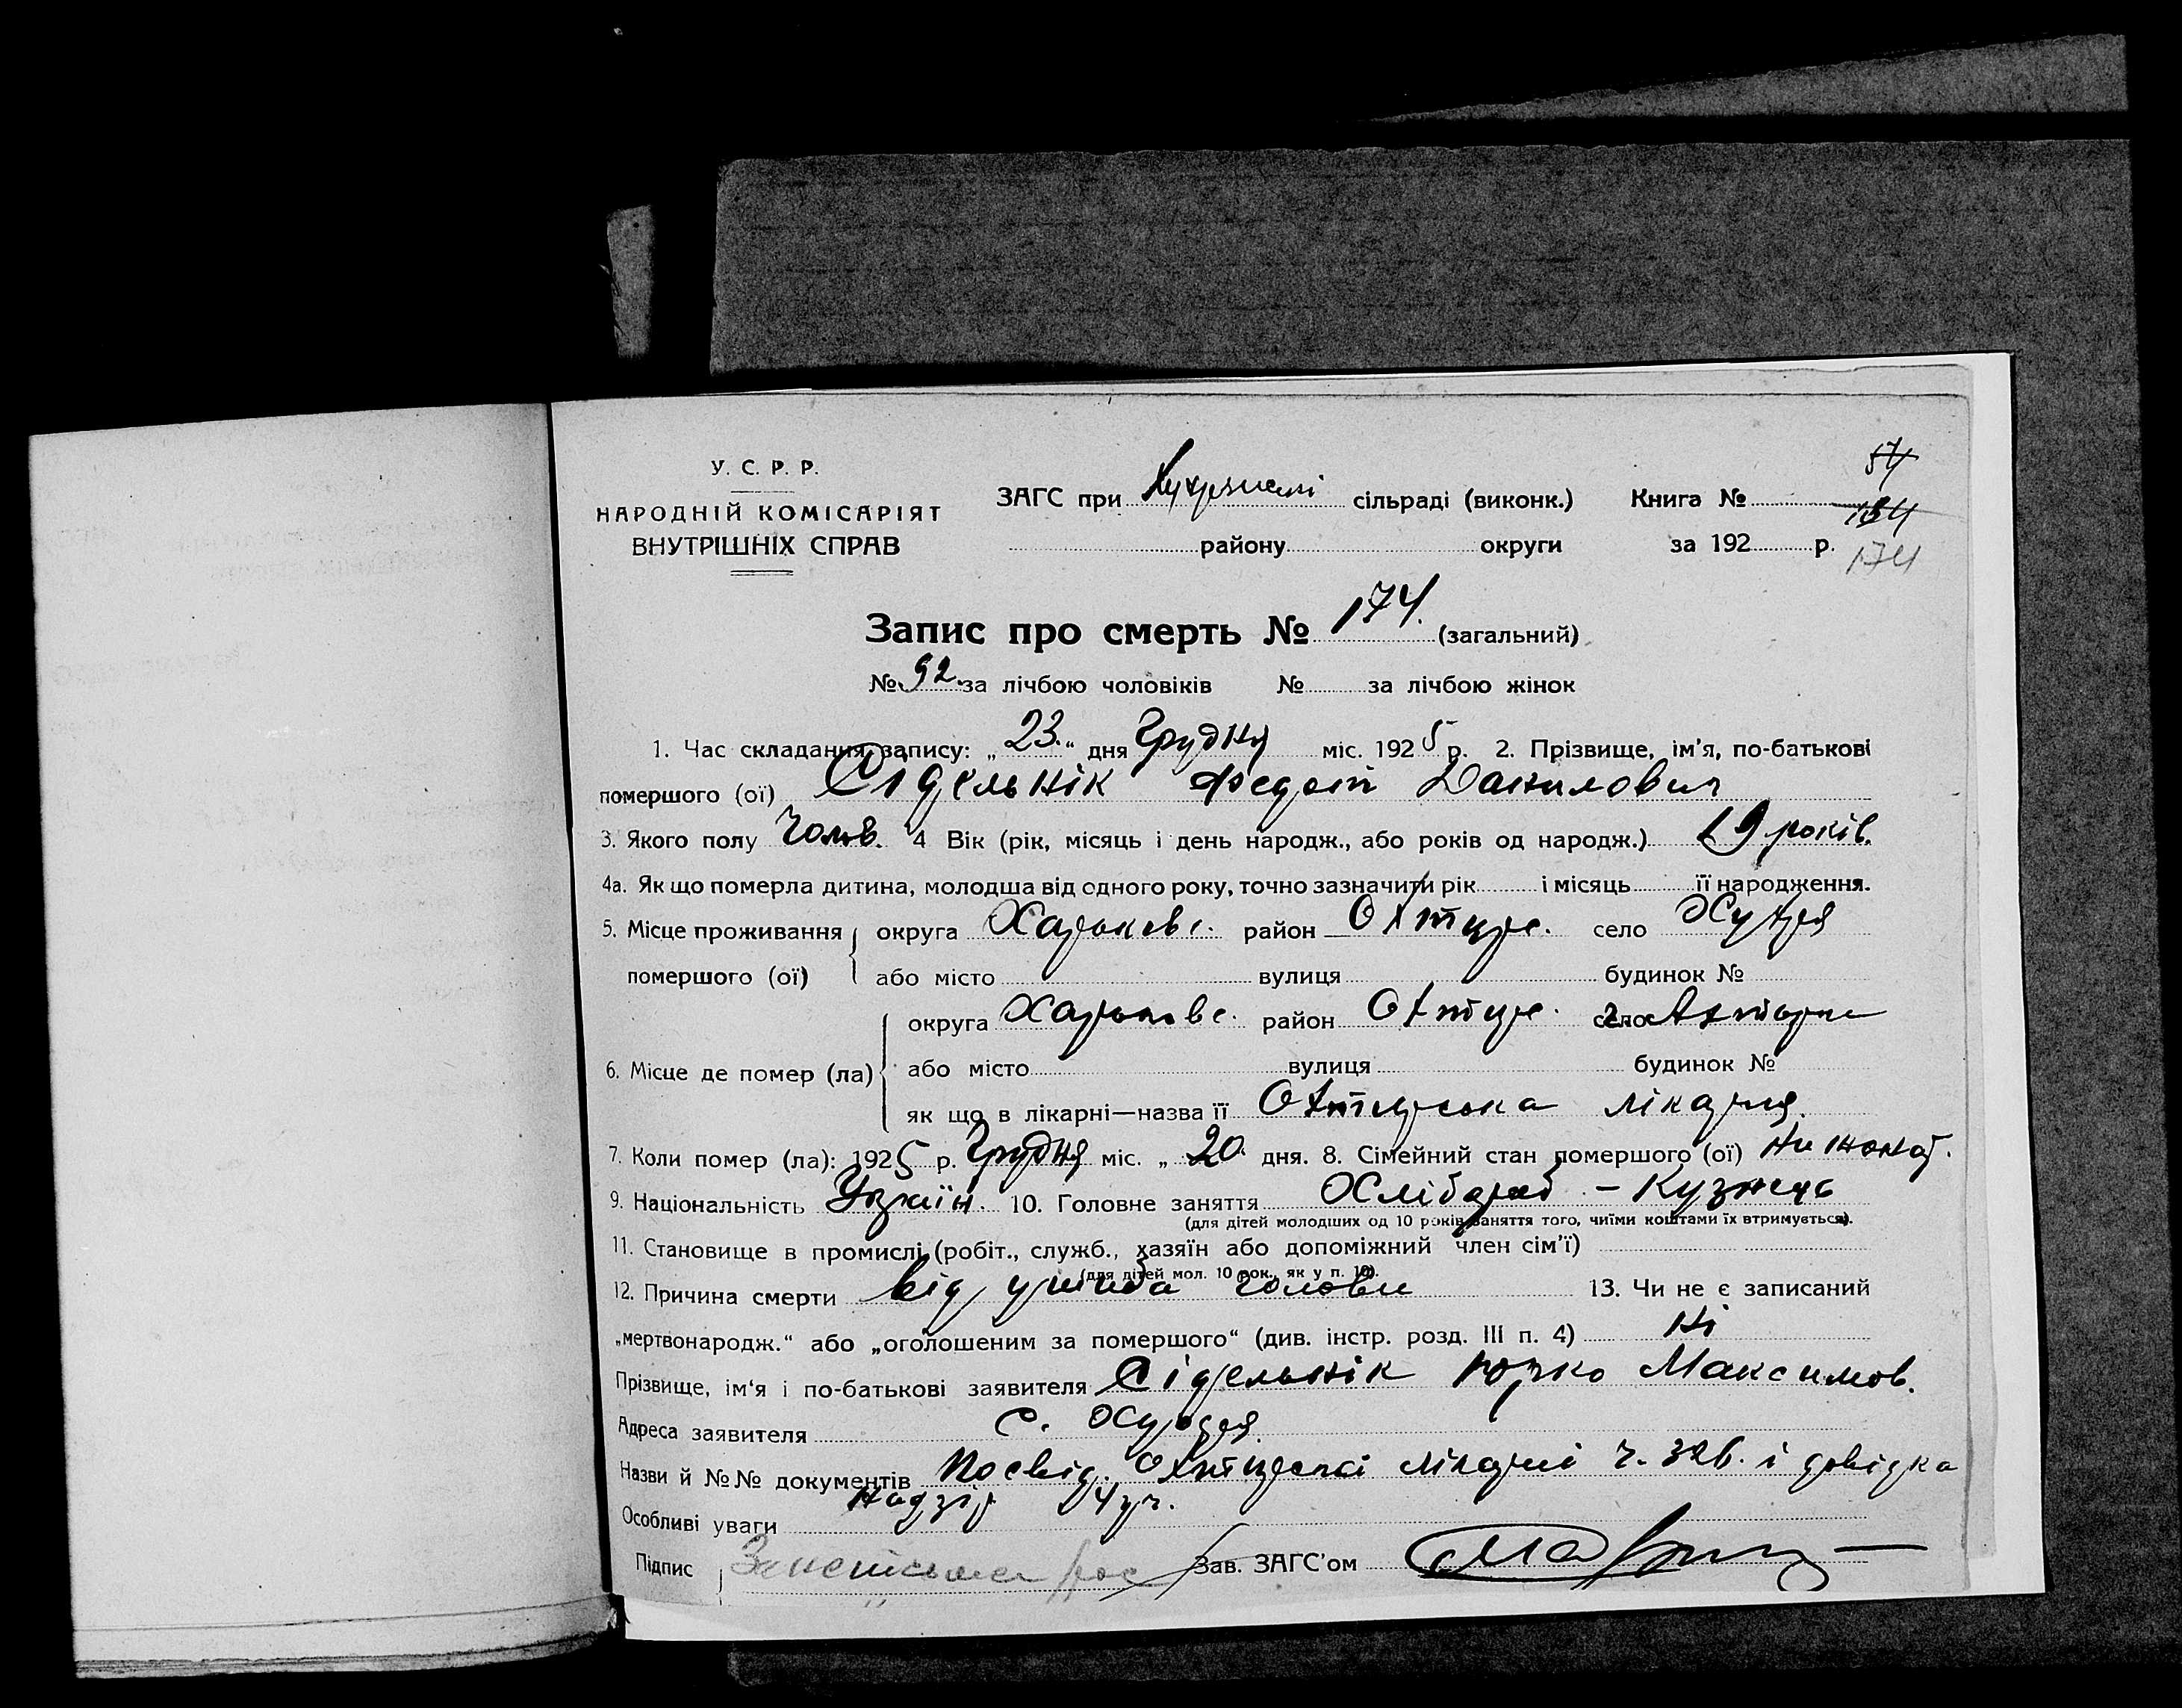 54
У. С. Р. Р.
НАРОДНІЙ КОМІСАРІЯТ
ВНУТРІШНІХ СПРАВ
ЗАГС при сільраді (виконк.)
району округи
Книга № 134
за 192 р. 174
Запис про смерть № 174. (загальний)
№ 92. за лічбою чоловіків № за лічбою жінок
1. Час складання запису: „ 23. “ дня Грудня міс. 1925 р. 2. Прізвище, ім’я, по-батькові
помершого (ої) Сідельнік Федот Данилович
3. Якого полу Чолов. 4 Вік (рік, місяць і день народж., або років од народж.) 19 років.
4а. Як що померла дитина, молодша від одного року, точно зазначити рік і місяць її народження.
5. Місце проживання округа Харьковс. район Охтирс. село Хухря
помершого (ої) або місто вулиця будинок №
округа Харьковс. район Охтирс. село
6. Місце де помер (ла) або місто вулиця будинок №
як що в лікарні—назва її Охтирська лікарня.
7. Коли помер (ла): 1925 р. Грудня міс. „ 20. дня. 8. Сімейний стан помершого (ої) Не жонат.
9. Національність Україн. 10. Головне заняття Хлібороб - Кузнець
(для дітей молодших од 10 років заняття того, чиїми коштами їх втримується).
11. Становище в промислі (робіт., служб., хазяїн або допоміжний член сім’ї)
(для дітей мол. 10 рок., як у п. 10).
12. Причина смерти від ушиба голови 13. Чи не є записаний
„мертвонародж.“ або „оголошеним за помершого“ (див. інстр. розд. III п. 4) Ні
Прізвище, ім‘я і по-батькові заявителя Сідельнік Юрко Максимов.
Адреса заявителя С. Хухря
Назви й №№ документів Посвід. Охтирської лікарні ч. і довідка
надзір 4 уч.
Особливі уваги
Підпис Зав. ЗАГС’ом